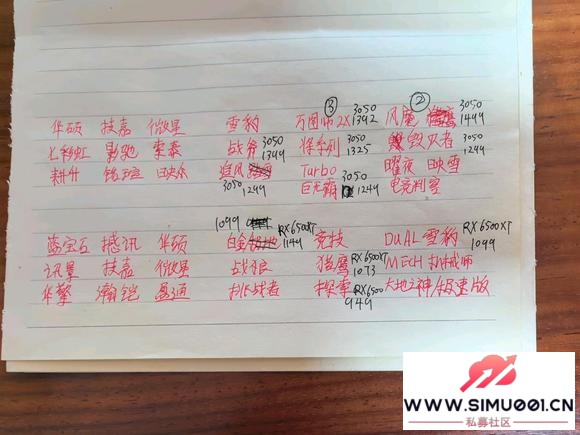 ③ 3050 ② 3050
华硕 技嘉 微星 雪豹 万图师 2X 1392 风魔 1499
七彩虹 影驰 索泰 战斧 3050 1399 将系列 1325 毁灭者 3050 1299
耕升 铭瑄 追风 3050 1299 Turbo 曜夜 映雪
巨无霸 3050 1249 电竞判官
1099
蓝宝石 撼讯 华硕 白金 RX6500XT 1149 竞技 DUAL 雪豹 RX6500XT 1099
讯景 技嘉 微星 战狼 猎鹰 RX6500XT 1073 MECH 机械师
华擎 瀚铠 盈通 挑战者 探索 RX6500 949 大地之神/极速版
WWW.SIMU001.CN
私募社区